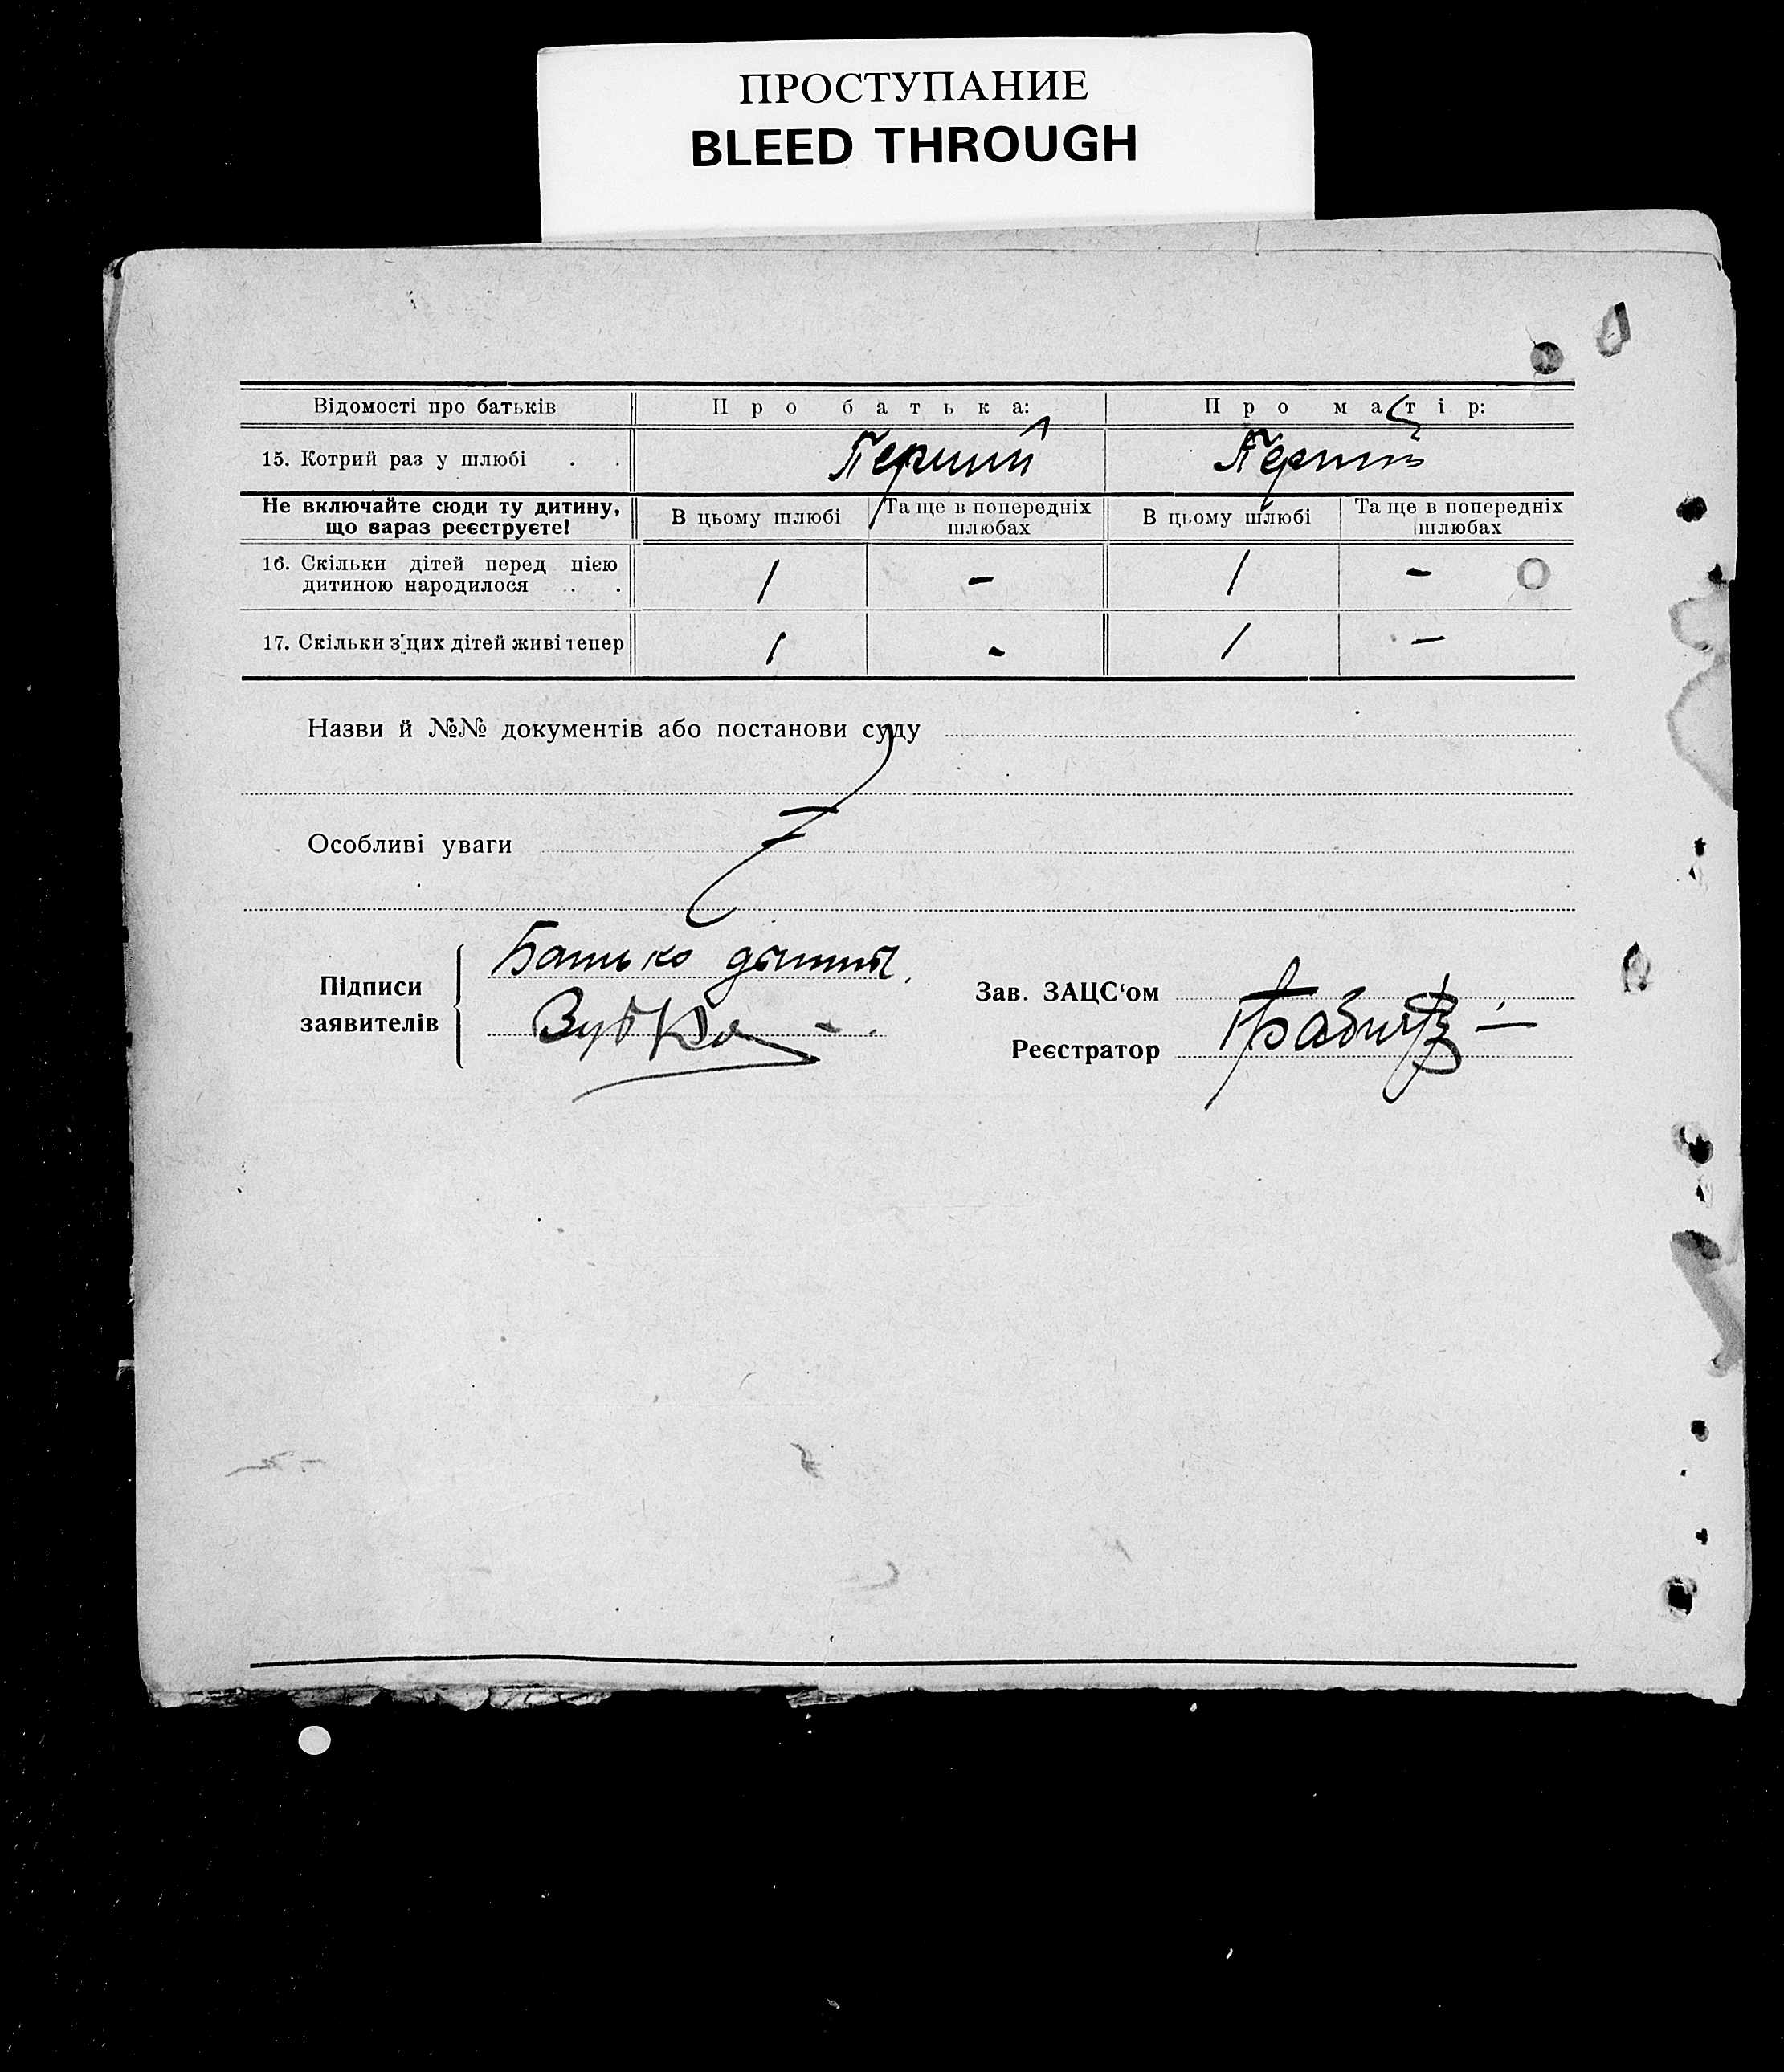 ПРОСТУПАНИЕ
BLEED THROUGH
Відомості про батьків Про батька: Про матір:
15. Котрий раз у шлюбі . . Перший Перший
Не включайте сюди ту дитину, що вараз реєструєте! В цьому шлюбі Та ще в попередніх шлюбах В цьому шлюбі Та ще в попередніх шлюбах
16. Скільки дітей перед цією
дитиною народилося . . 1 - 1 -
17. Скільки з цих дітей живі тепер 1 - 1 -
Назви й №№ документів або постанови суду
Особливі уваги
Підписи заявителів
Батько дитини
Зав. ЗАЦС‘ом
Реєстратор